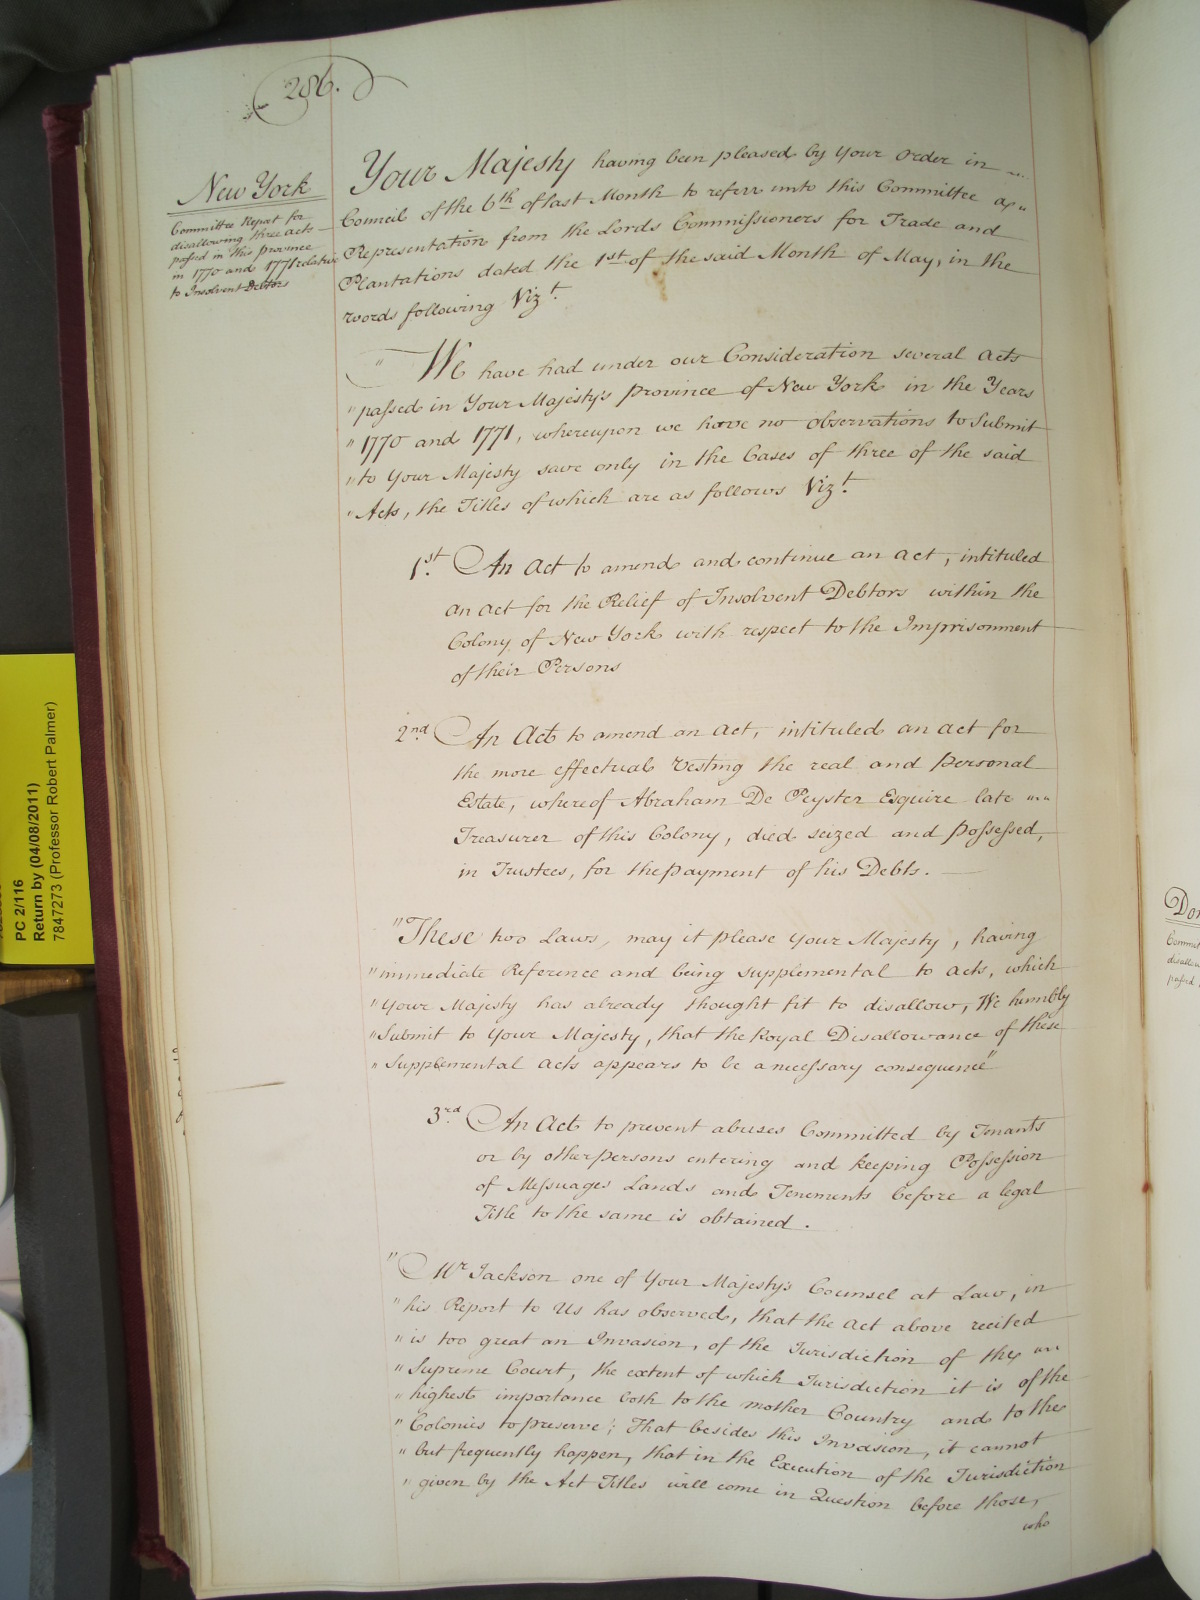 286.
New York
Committee Report for
disallowing three acts
passed in this Province
in 1770 and 1771 relative
to Insolvent Debtors
Your Majesty having been pleased by Your Order in
Council of the 6th of last Month to referr unto this Committee a
Representation from the Lords Commissioners for Trade and
Plantations dated the 1st of the said Month of May, in the
words following Vizt.
" We have had under our Consideration several Acts
" passed in Your Majesty's Province of New York in the Years
" 1770 and 1771, whereupon we have no observations to Submit
" to Your Majesty save only in the Cases of three of the said
" Acts, the Titles of which are as follows Vizt.
1st. An Act to amend and continue an act, intituled
an act for the Relief of Insolvent Debtors within the
Colony of New York with respect to the Imprisonment
of their Persons
2nd. An Act to amend an Act, intituled an act for
the more effectual Vesting the real and personal
Estate, whereof Abraham De Peyster Esquire late
Treasurer of this Colony, died seized and possessed,
in Trustees, for the payment of his Debts.
" These two Laws, may it please Your Majesty, having
" immediate Reference and being supplemental to acts, which
" Your Majesty has already thought fit to disallow, We humbly
" Submit to Your Majesty, that the Royal Disallowance of these
" Supplemental Acts appears to be a necessary consequence"
3rd. An Act to prevent abuses Committed by Tenants
or by other persons entering and keeping Possession
of Messuages Lands and Tenements before a legal
Title to the same is obtained.
" Mr Jackson one of Your Majesty's Counsel at Law, in
" his Report to Us has observed, that the Act above recited
" is too great an Invasion, of the Jurisdiction of the
" Supreme Court, the extent of which Jurisdiction it is of the
" highest importance both to the mother Country and to the
" Colonies to preserve; That besides this Invasion, it cannot
" but frequently happen, that in the Execution of the Jurisdiction
" given by the Act Titles will come in Question before those,
who
PC 2/116
Return by (04/08/2011)
7847273 (Professor Robert Palmer)